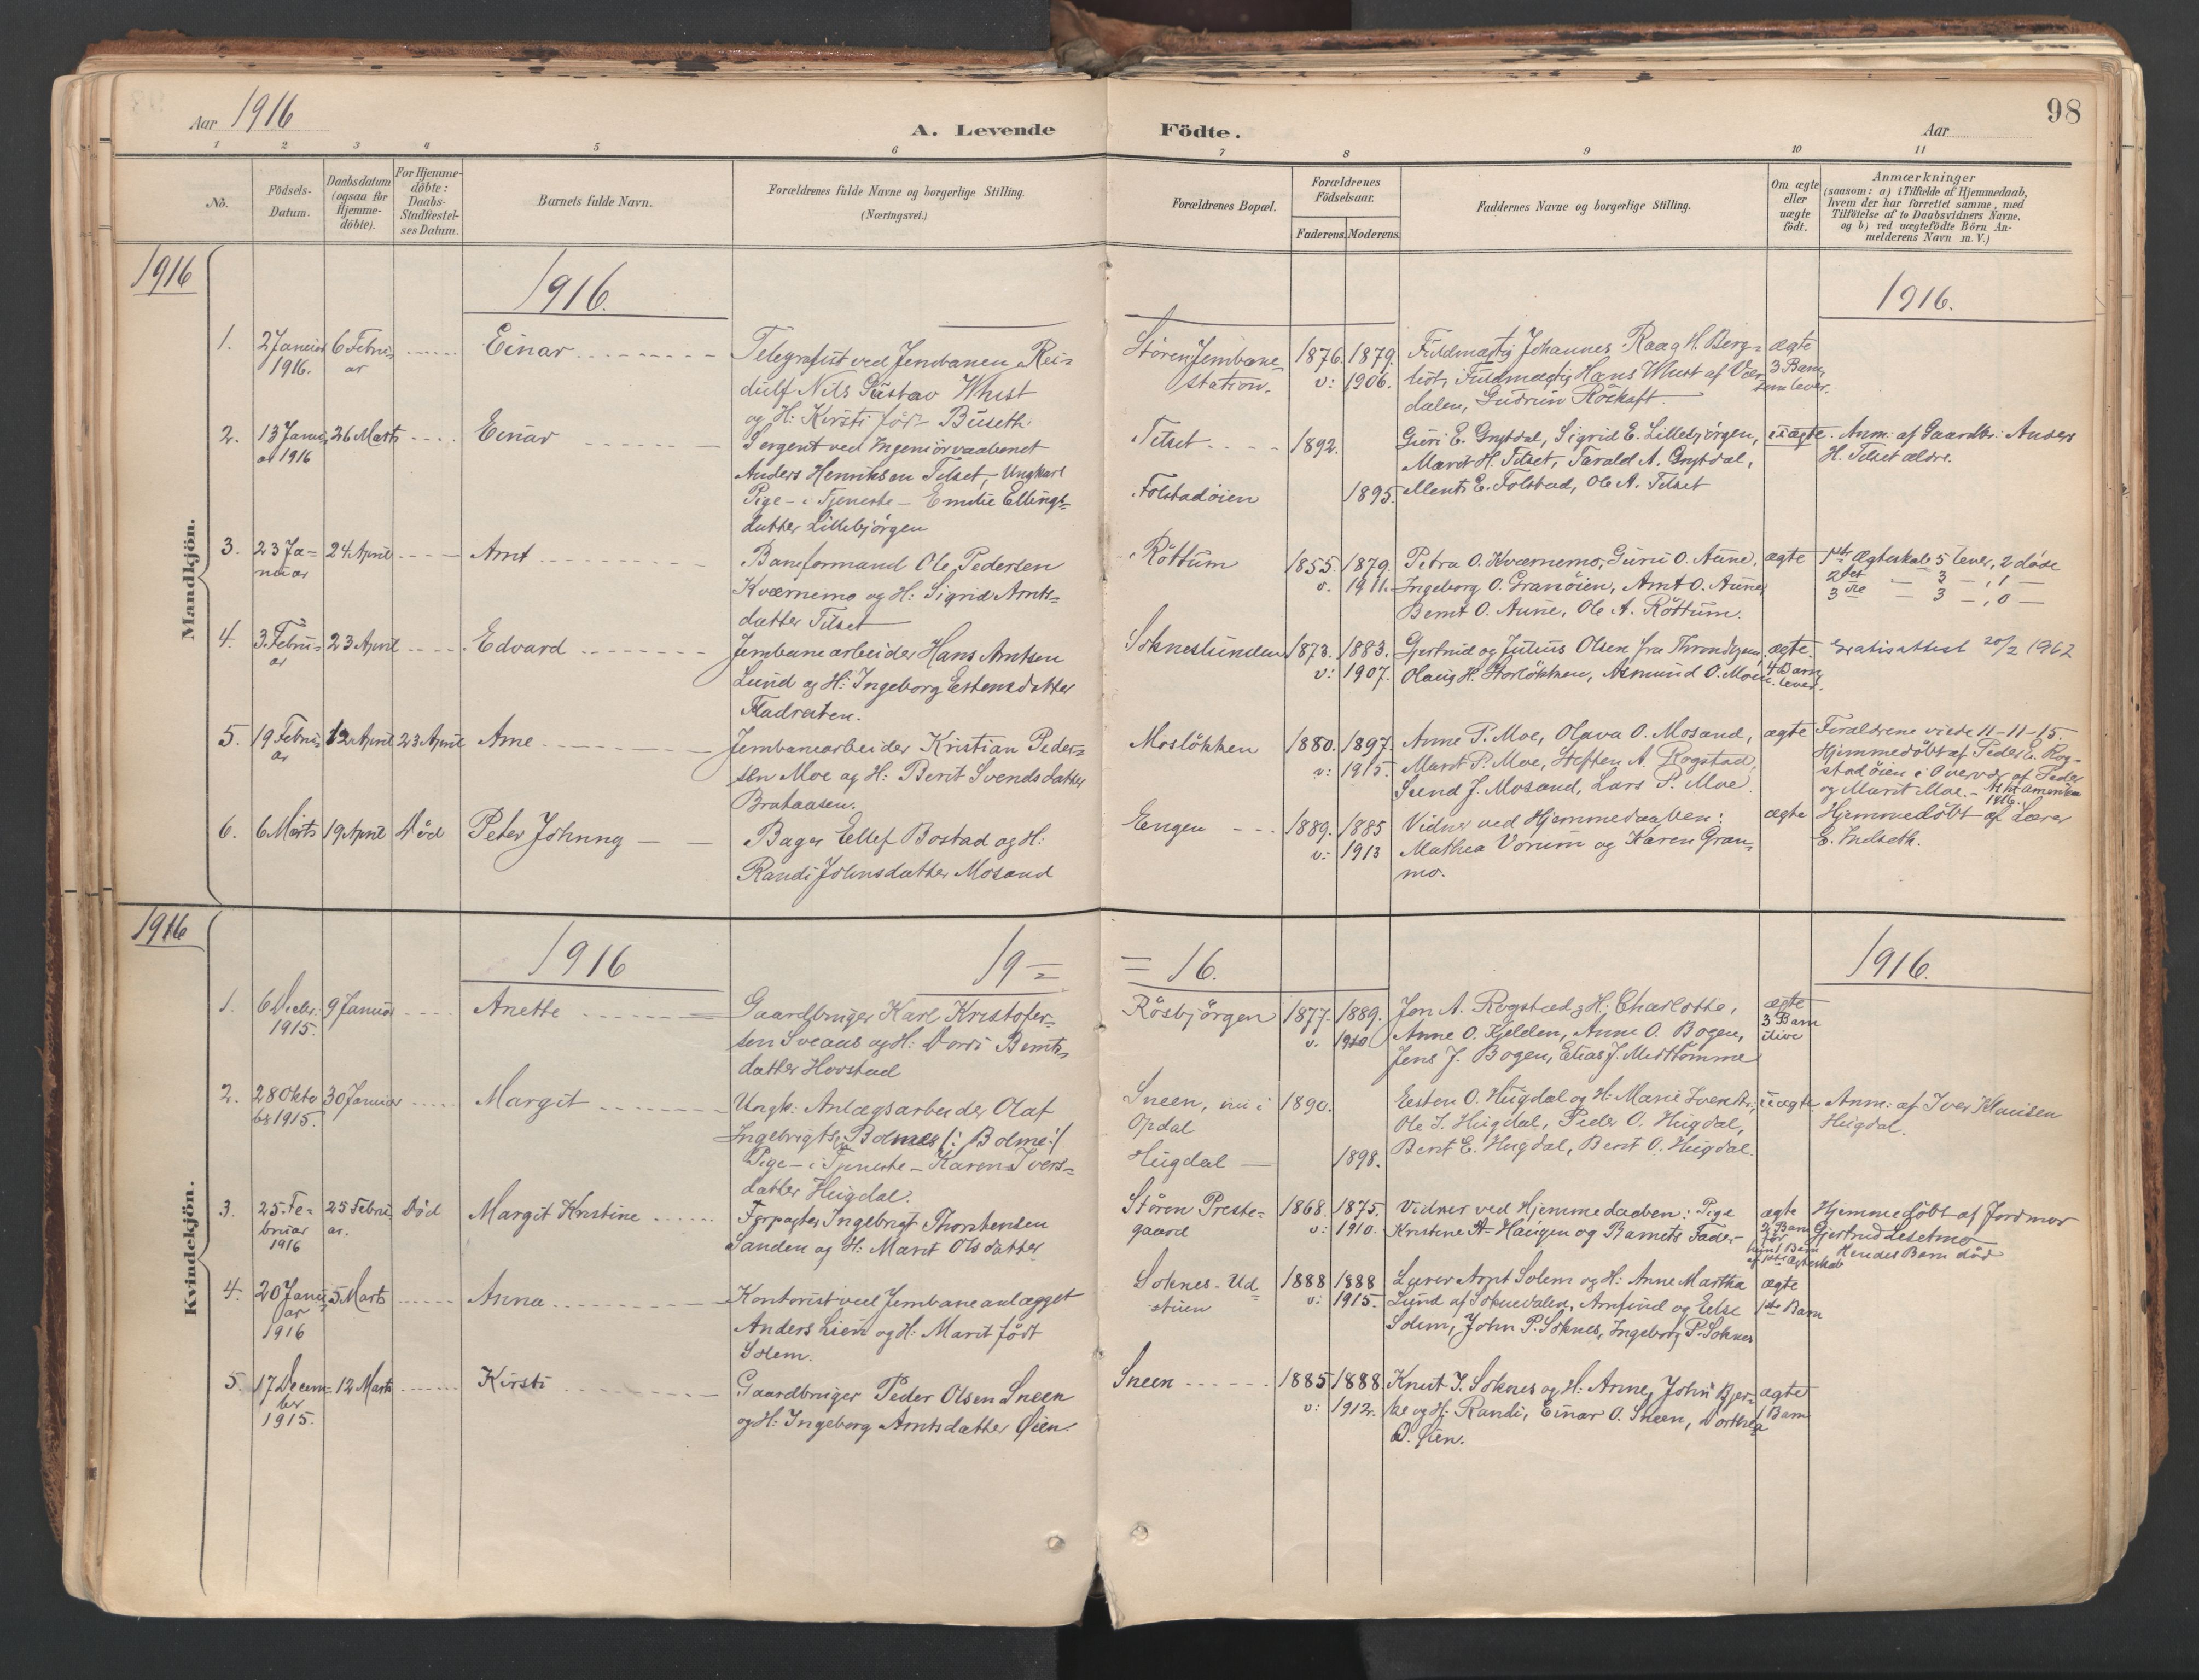 Aar 1916
A. Levende
Födte.
Aar
98
1 2 3 4 5 6 7 8 9 10 11
No.
Födsels-
Datum.
Daabsdatum
(ogsaa for
Hjemme-
döbte).
For Hjemme-
döbte:
Daabs-
Stadfæstel-
ses Datum.
Barnets fulde Navn.
Forældrenes fulde Navne og borgerlige Stilling.
(Næringsvei.)
Forældrenes Bopæl.
Forældrenes
Födselsaar.
Faderens. Moderens.
Faddernes Navne og borgerlige Stilling.
Om ægte
eller
uægte
födt.
Anmærkninger
(saasom: a) i Tilfælde af Hjemmedaab,
hvem der har forrettet samme, med
Tilföielse af to Daabsvidners Navne,
og b) ved uægtefödte Börn An-
melderens Navn m. V.)
1916
1916.
1916.
Mandkjön.
1.
2 Januar
1916.
6 Febru-
ar
Einar
Telegrafist ved Jernbanen Rei-
dulf Nils Gustav Whist
og H: Kirsti født Buseth
Støren Jernbane-
station.
1876. 1879.
v: 1906.
Fuldmægtig Johannes Raag H. Berg-
Fuldmægtig Hans Whist af Vær-
dalen, Gudrun
ægte
3 Barn
2 lever.
2.
13 Janu-
ar 1916
26 Marts
Einar
Sergent ved Ingeniørvaabenet
Anders Henriksen Tilset, Ungkarl
Pige - i Tjeneste - Emilie Ellings-
datter Lillebjørgen
Tilset
Folstadøien
1892.
1895.
Guri E. Grytdal, Sigrid E. Lillebjørgen,
Marit H. Tilset, Tarald A. Grytdal,
Ments E. Folstad, Ole A. Tilset
uægte.
Anm: af Gaardbr: Anders
H. Tilset ældre.
3.
23 Ja-
nuar
24 April
Arnt
Baneformand Ole Pedersen
Kværnemo og H: Sigrid Arnts-
datter Tilset
Røttum
1855. 1879.
v. 1911.
Petra O. Kværnemo, Guru O. Aune,
Ingeborg O. Granøien, Arnt O. Aune,
Bernt O. Aune, Ole A. Røttum.
ægte
1ste Ægteskab 5 lever, 2 døde
2det — 3 —, 1 —
3die — 3 —, 0 —
4.
3. Febru-
ar
23 April
Edvard
Jernbanearbeider Hans Arntsen
Lund og H: Ingeborg Estensdatter
Fladreiten.
Sokneslunden
1873. 1883.
v: 1907.
Gjertrud og Julius Olsen fra Throndhjem,
Olaug H. Storløkken, Asmund O. Moen
ægte.
4 Barn
lever.
Gratisattest 20/2 1962
5.
19 Febru-
ar
12 April
23 April
Arne
Jernbanearbeider Kristian Peder-
sen Moe og H: Berit Svendsdatter
Brataasen.
Mosløkken
1880. 1897.
v: 1915.
Anne P. Moe, Olava O. Mosand,
Marit P. Moe, Steffen A. Rogstad,
Svend J. Mosand, Lars P. Moe.
ægte
Forældrene viede 11-11-15.
Hjemmedøbt af Peder E. Rog-
stadøien i Overvær af Peder
og Marit Moe. - Amerika
1916.
6.
6 Marts
19 April
Død
Peter Johnny
Bager Ellef Bostad og H:
Randi Johnsdatter Mosand
Engen
1889. 1885
v: 1913
Vidner ved Hjemmedaaben:
Mathea Vorum og Karen Gran-
mo.
ægte
Hjemmedøbt af Lærer
E. Indseth.
1916
1916
19 =
= 16.
1916.
Kvindekjön.
1.
6 Decbr:
1915.
9 Januar
Anette
Gaardbruger Karl Kristofer-
sen Sveaas og H: Dordi Bernts-
datter Hovstad
Røsbjørgen
1877. 1889.
v. 1910
Jon A. Rogstad og H: Charlotte,
Anne O. Kjelden, Anne O. Bogen,
Jens J. Bogen, Elias J. Midttømme
ægte
3 Barn
ilive
2.
28 Okto
ber 1915.
30 Januar
Margit
Ungk: Anlægsarbeider Olaf
Ingebrigtsen Bolmes /: Bolme :/
Pige - i Tjeneste - Karen Ivers-
datter Hugdal.
Sneen, nu i
Opdal
Hugdal
1890.
1898.
Esten O. Hugdal og H: Marie Iversdtr.,
Ole I. Hugdal, Peder O. Hugdal,
Berit E. Hugdal, Berit O. Hugdal.
uægte
Anm: af Iver Klausen
Hugdal.
3.
25. Fe-
bruar
1916
25 Febru-
ar.
Død
Margit Kristine
Forpagter Ingebrigt Thorstensen
Sanden og H: Marit Olsdatter
Støren Preste-
gaard
1868. 1875.
v: 1910.
Vidner ved Hjemmedaaben: Pige
Kristine A. Haugen og Barnets Fader
ægte
2 Barn
før
Hjemmedøbt af Jordmor
Gjertrud Lesetmo
Hendes Barn død
4.
20 Janu-
ar
1916
5 Marts
Anna
Kontorist ved Jernbaneanlægget
Anders Lien og H: Marit født
Solem.
Soknes-Ud-
stuen
1888 1888
v: 1915.
Lærer Arnt Solem og H: Anne Martha
Lund af Soknedalen, Arnfind og Else
Solem, John P. Soknes, Ingeborg P. Soknes
ægte
1ste Barn
5.
17 Decem-
ber
1915.
12 Marts
Kirsti
Gaardbruger Peder Olsen Sneen
og H: Ingeborg Arntsdatter Øien.
Sneen
1885 1888
v: 1912.
Knut I. Soknes og H: Anne, John Bjer-
ke og H: Randi, Einar O. Sneen, Dorthea
O. Øien.
ægte
1 Barn